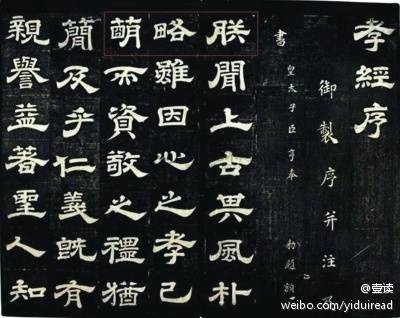 孝經序
御製序并注及
書
皇太子臣亨奉 勑題額
朕聞上古其風朴
略雖因心之孝已
萌而資敬之禮猶
簡及乎仁義既有
親譽益著聖人知
@壹读
weibo.com/yiduiread